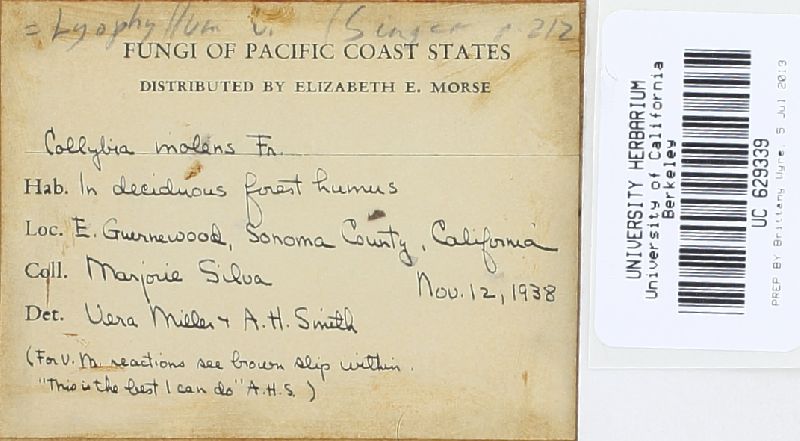 = Lyophyllum v. (Singer p. 212
FUNGI OF PACIFIC COAST STATES
DISTRIBUTED BY ELIZABETH E. MORSE
Collybia molens Fr.
Hab. In deciduous forest humus
Loc. E. Guernewood, Sonoma County, California
Coll. Marjorie Silva Nov. 12, 1938
Det. Vera Miller & A.H. Smith
(For V.M. reactions see brown slip within.
"This is the best I can do" A.H.S.)
UNIVERSITY HERBARIUM
University of California
Berkeley
UC 629339
PREP BY Brittany Ugre, 5 Jul 2013